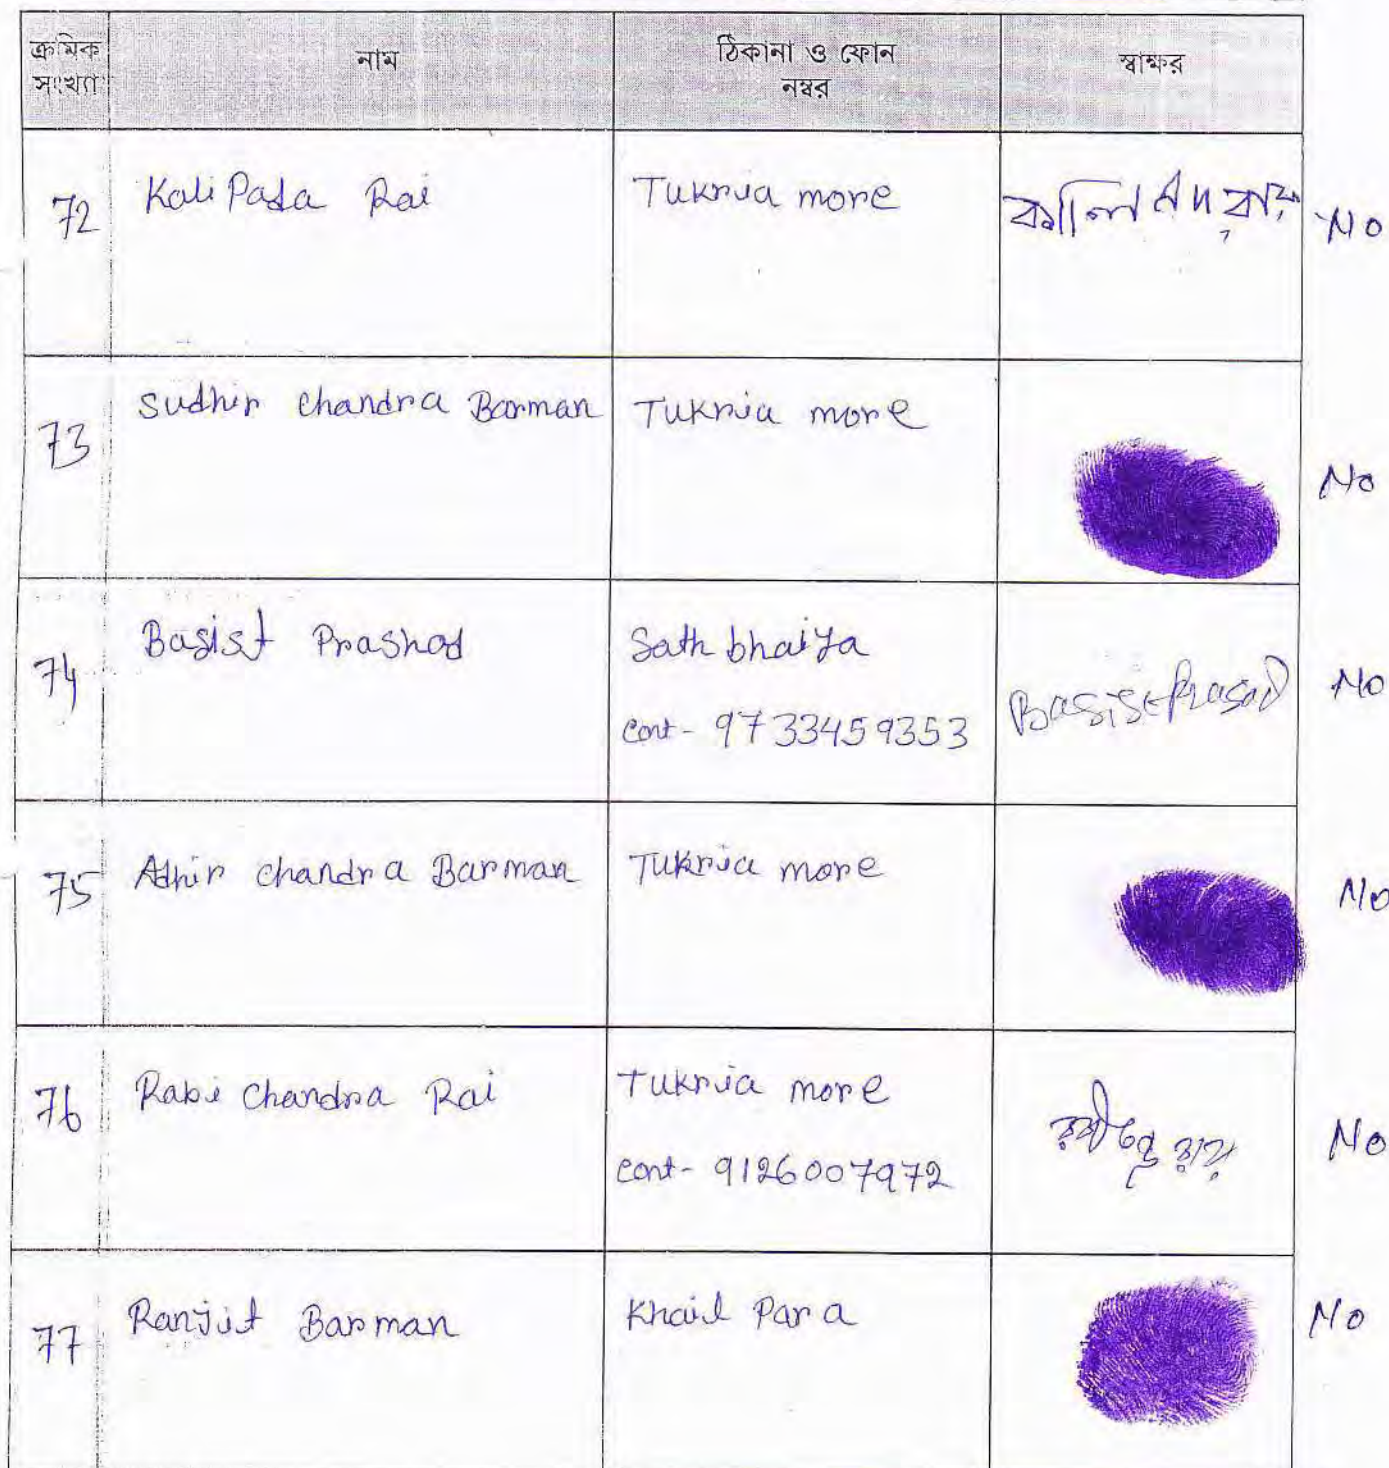 ক্রমিক সংখ্যা
নাম
ঠিকানা ও ফোন নম্বর
স্বাক্ষর
72 Kali Pada Rai Tukria more কালিপদ রায় No
73 Sudhir Chandra Barman Tukria more No
74 Basist Prashad Sath bhaiya Basist Prasad No
Cont- 9733459353
75 Adhir Chandra Barman Tukria more No
76 Rabi Chandra Rai Tukria more No
Cont- 9126007972
77 Ranjit Barman Khail Para No